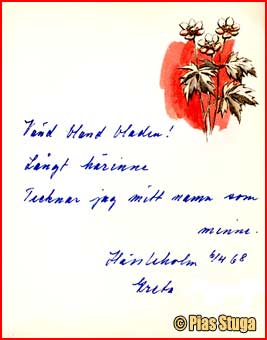 Vänd bland bladen!
Långt härinne
Tecknar jag mitt namn som
minne.
Hässleholm 6/4 68
Greta
© Pias Stuga